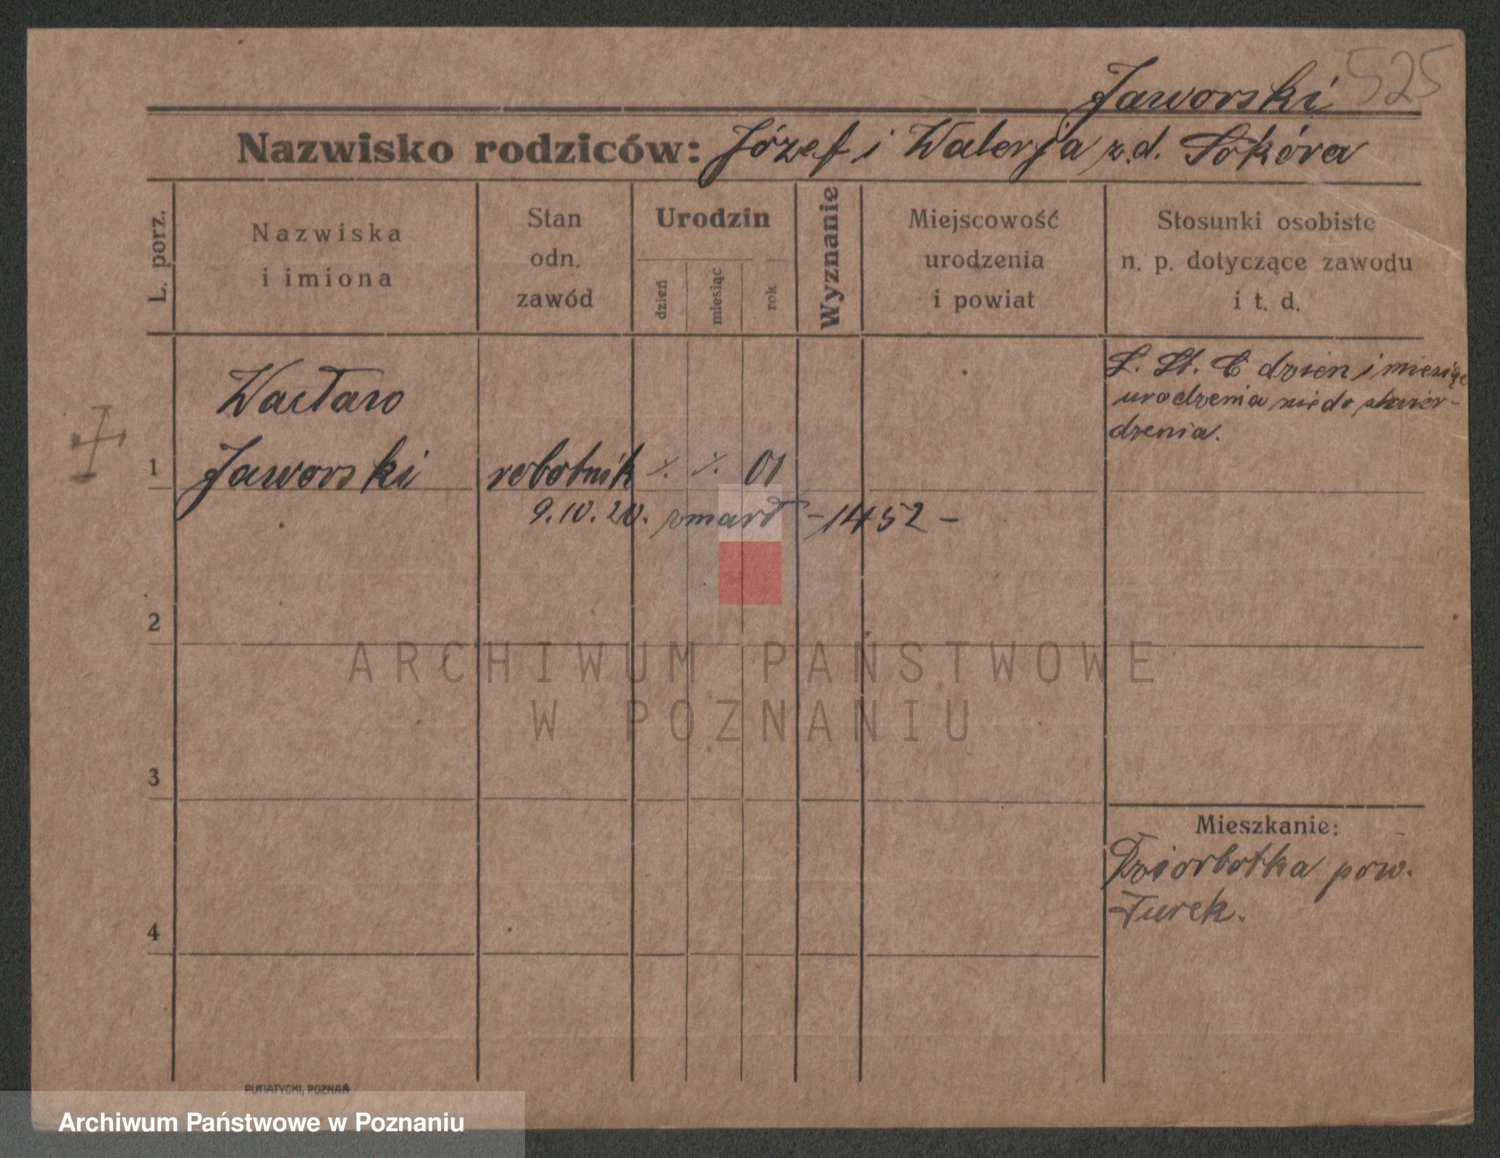 525
Jaworski
Nazwisko rodziców: Józef i Walerja z.d. Sokóra
L. porz.
Nazwiska
i imiona
Stan
odn.
zawód
Urodzin
dzień
miesiąc
rok
Wyznanie
Miejscowość
urodzenia
i powiat
Stosunki osobiste
n. p. dotyczące zawodu
i t. d.
Wacław
1 Jaworski robotnik ./. ./. 01
dzień i miesiąc
urodzenia nie do stwier-
dzenia.
9.10.20. zmarł -1452-
2
3
4
Mieszkanie:
Dziorbotka pow.
Turek.
ARCHIWUM PAŃSTWOWE
W POZNANIU
PUTIATYCKI, POZNAŃ
Archiwum Państwowe w Poznaniu